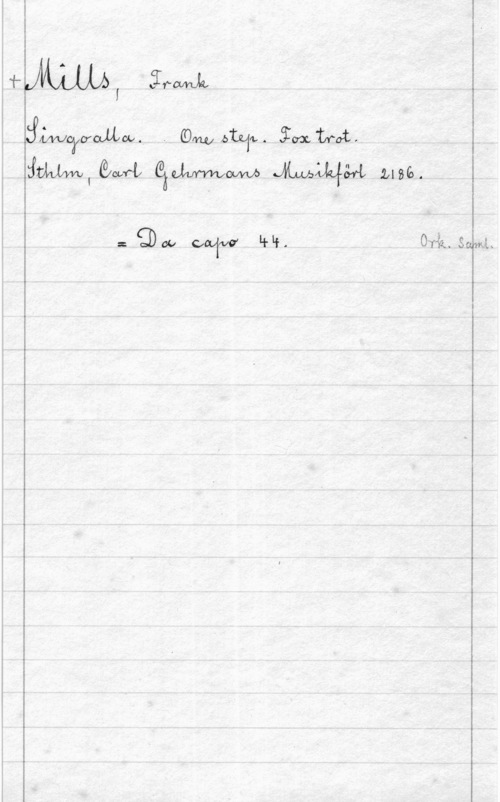 + Mills, Frank
Singoalla. One step. Fox trot.
Sthlm, Carl Gehrmans Musikförl 2186.
= Da capo 44. Ork. Saml.